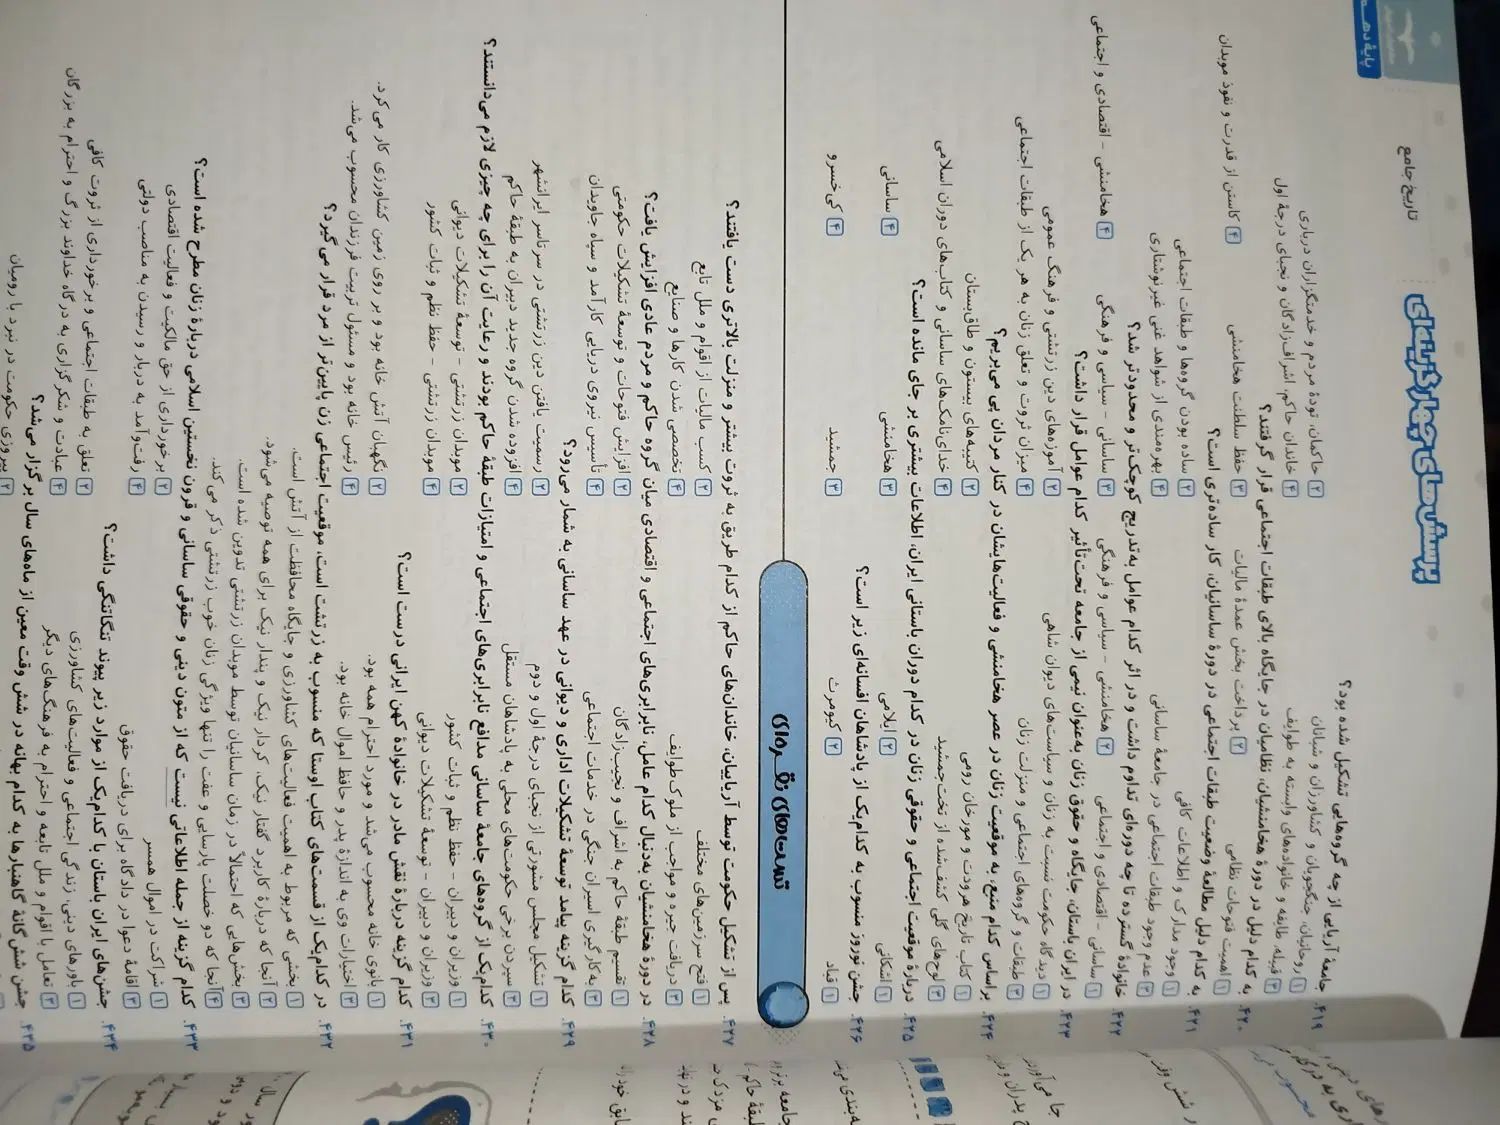 پایهٔ دهـم
تاریخ جامع
پرسش‌های چهارگزینه‌ای
۴۱۹. جامعهٔ آریایی از چه گروه‌هایی تشکیل شده بود؟
۱ روحانیان، جنگجویان و کشاورزان و شبانان
۲ حاکمان، تودهٔ مردم و خدمتگزاران درباری
۳ قبیله، طایفه و خانواده‌های وابسته به طوایف
۴ خاندان حاکم، اشراف‌زادگان و نجبای درجهٔ اول
۴۲۰. به کدام دلیل در دورهٔ هخامنشیان، نظامیان در جایگاه بالای طبقات اجتماعی قرار گرفتند؟
۱ اهمیت فتوحات نظامی ۲ پرداخت بخش عمدهٔ مالیات ۳ حفظ سلطنت هخامنشی ۴ کاستن از قدرت و نفوذ موبدان
۴۲۱. به کدام دلیل مطالعهٔ وضعیت طبقات اجتماعی در دورهٔ ساسانیان، کار ساده‌تری است؟
۱ وجود مدارک و اطلاعات کافی
۲ ساده بودن گروه‌ها و طبقات اجتماعی
۳ عدم وجود طبقات اجتماعی در جامعهٔ ساسانی
۴ بهره‌مندی از شواهد غنی غیرنوشتاری
۴۲۲. خانوادهٔ گسترده تا چه دوره‌ای تداوم داشت و در اثر کدام عوامل به‌تدریج کوچک‌تر و محدودتر شد؟
۱ ساسانی - اقتصادی و اجتماعی ۲ هخامنشی - سیاسی و فرهنگی ۳ ساسانی - سیاسی و فرهنگی ۴ هخامنشی - اقتصادی و اجتماعی
۴۲۳. در ایران باستان، جایگاه و حقوق زنان به‌عنوان نیمی از جامعه تحت‌تأثیر کدام عوامل قرار داشت؟
۱ دیدگاه حکومت نسبت به زنان و سیاست‌های دیوان شاهی
۲ آموزه‌های دین زرتشتی و فرهنگ عمومی
۳ طبقات و گروه‌های اجتماعی و منزلت زنان
۴ میزان ثروت و تعلق زنان به هر یک از طبقات اجتماعی
۴۲۴. براساس کدام منبع، به موقعیت زنان در عصر هخامنشی و فعالیت‌هایشان در کنار مردان پی می‌بریم؟
۱ کتاب تاریخ هرودت و مورخان رومی
۲ کتیبه‌های بیستون و طاق‌بستان
۳ لوح‌های گلی کشف‌شده از تخت‌جمشید
۴ خدای‌نامک‌های ساسانی و کتاب‌های دوران اسلامی
۴۲۵. دربارهٔ موقعیت اجتماعی و حقوقی زنان در کدام دوران باستانی ایران، اطلاعات بیشتری بر جای مانده است؟
۱ اشکانی ۲ ایلامی ۳ هخامنشی ۴ ساسانی
۴۲۶. جشن نوروز منسوب به کدام‌یک از پادشاهان افسانه‌ای زیر است؟
۱ قباد ۲ کیومرث ۳ جمشید ۴ کی‌خسرو
تست‌های نقره‌ای
۴۲۷. پس از تشکیل حکومت توسط آریاییان، خاندان‌های حاکم از کدام طریق به ثروت بیشتر و منزلت بالاتری دست یافتند؟
۱ فتح سرزمین‌های مختلف
۲ کسب مالیات از اقوام و ملل تابع
۳ دریافت جیره و مواجب از ملوک‌طوایف
۴ تخصصی شدن کارها و صنایع
۴۲۸. در دورهٔ هخامنشیان به‌دنبال کدام عامل، نابرابری‌های اجتماعی و اقتصادی میان گروه حاکم و مردم عادی افزایش یافت؟
۱ تقسیم طبقهٔ حاکم به اشراف و نجیب‌زادگان
۲ افزایش فتوحات و توسعهٔ تشکیلات حکومتی
۳ به‌کارگیری اسیران جنگی در خدمات اجتماعی
۴ تأسیس نیروی دریایی کارآمد و سپاه جاویدان
۴۲۹. کدام گزینه پیامد توسعهٔ تشکیلات اداری و دیوانی در عهد ساسانی به شمار می‌رود؟
۱ تشکیل مجلس مشورتی از نجبای درجهٔ اول و دوم
۲ رسمیت یافتن دین زرتشتی در سرتاسر ایرانشهر
۳ سپردن برخی حکومت‌های محلی به پادشاهان مستقل
۴ افزوده شدن گروه جدید دبیران به طبقهٔ حاکم
۴۳۰. کدام‌یک از گروه‌های جامعهٔ ساسانی مدافع نابرابری‌های اجتماعی و امتیازات طبقهٔ حاکم بودند و رعایت آن را برای چه چیزی لازم می‌دانستند؟
۱ وزیران و دبیران - حفظ نظم و ثبات کشور
۲ موبدان زرتشتی - توسعهٔ تشکیلات دیوانی
۳ وزیران و دبیران - توسعهٔ تشکیلات دیوانی
۴ موبدان زرتشتی - حفظ نظم و ثبات کشور
۴۳۱. کدام گزینه دربارهٔ نقش مادر در خانوادهٔ کهن ایرانی درست است؟
۱ بانوی خانه محسوب می‌شد و مورد احترام همه بود.
۲ نگهبان آتش خانه بود و بر روی زمین کشاورزی کار می‌کرد.
۳ اختیارات وی به اندازهٔ پدر و حافظ اموال خانه بود.
۴ رئیس خانه بود و مسئول تربیت فرزندان محسوب می‌شد.
۴۳۲. در کدام‌یک از قسمت‌های کتاب اوستا که منسوب به زرتشت است، موقعیت اجتماعی زن پایین‌تر از مرد قرار می‌گیرد؟
۱ بخشی که مربوط به اهمیت فعالیت‌های کشاورزی و جایگاه محافظت از آتش است.
۲ آنجا که دربارهٔ کاربرد گفتار نیک، کردار نیک و پندار نیک برای همه توصیه می‌شود.
۳ بخش‌هایی که احتمالاً در زمان ساسانیان توسط موبدان زرتشتی تدوین شده است.
۴ آنجا که دو خصلت پارسایی و عفت را تنها ویژگی زنان خوب زرتشتی ذکر می کند.
۴۳۳. کدام گزینه از جمله اطلاعاتی نیست که از متون دینی و حقوقی ساسانی و قرون نخستین اسلامی دربارهٔ زنان مطرح شده است؟
۱ شراکت در اموال همسر
۲ برخورداری از حق مالکیت و فعالیت اقتصادی
۳ اقامهٔ دعوا در دادگاه برای دریافت حقوق
۴ رفت‌وآمد به دربار و رسیدن به مناصب دولتی
۴۳۴. جشن‌های ایران باستان با کدام‌یک از موارد زیر پیوند تنگاتنگی داشت؟
۱ باورهای دینی، زندگی اجتماعی و فعالیت‌های کشاورزی
۲ تعلق به طبقات اجتماعی و برخورداری از ثروت کافی
۳ تعامل با اقوام و ملل تابعه و احترام به فرهنگ‌های دیگر
۴ عبادت و شکرگزاری به درگاه خداوند بزرگ و احترام به بزرگان
۴۳۵. جشن شش گانهٔ گاهنبارها به کدام بهانه در شش وقت معین از ماه‌های سال برگزار می‌شد؟
۲ پیروزی حکومت در نبرد با رومیان